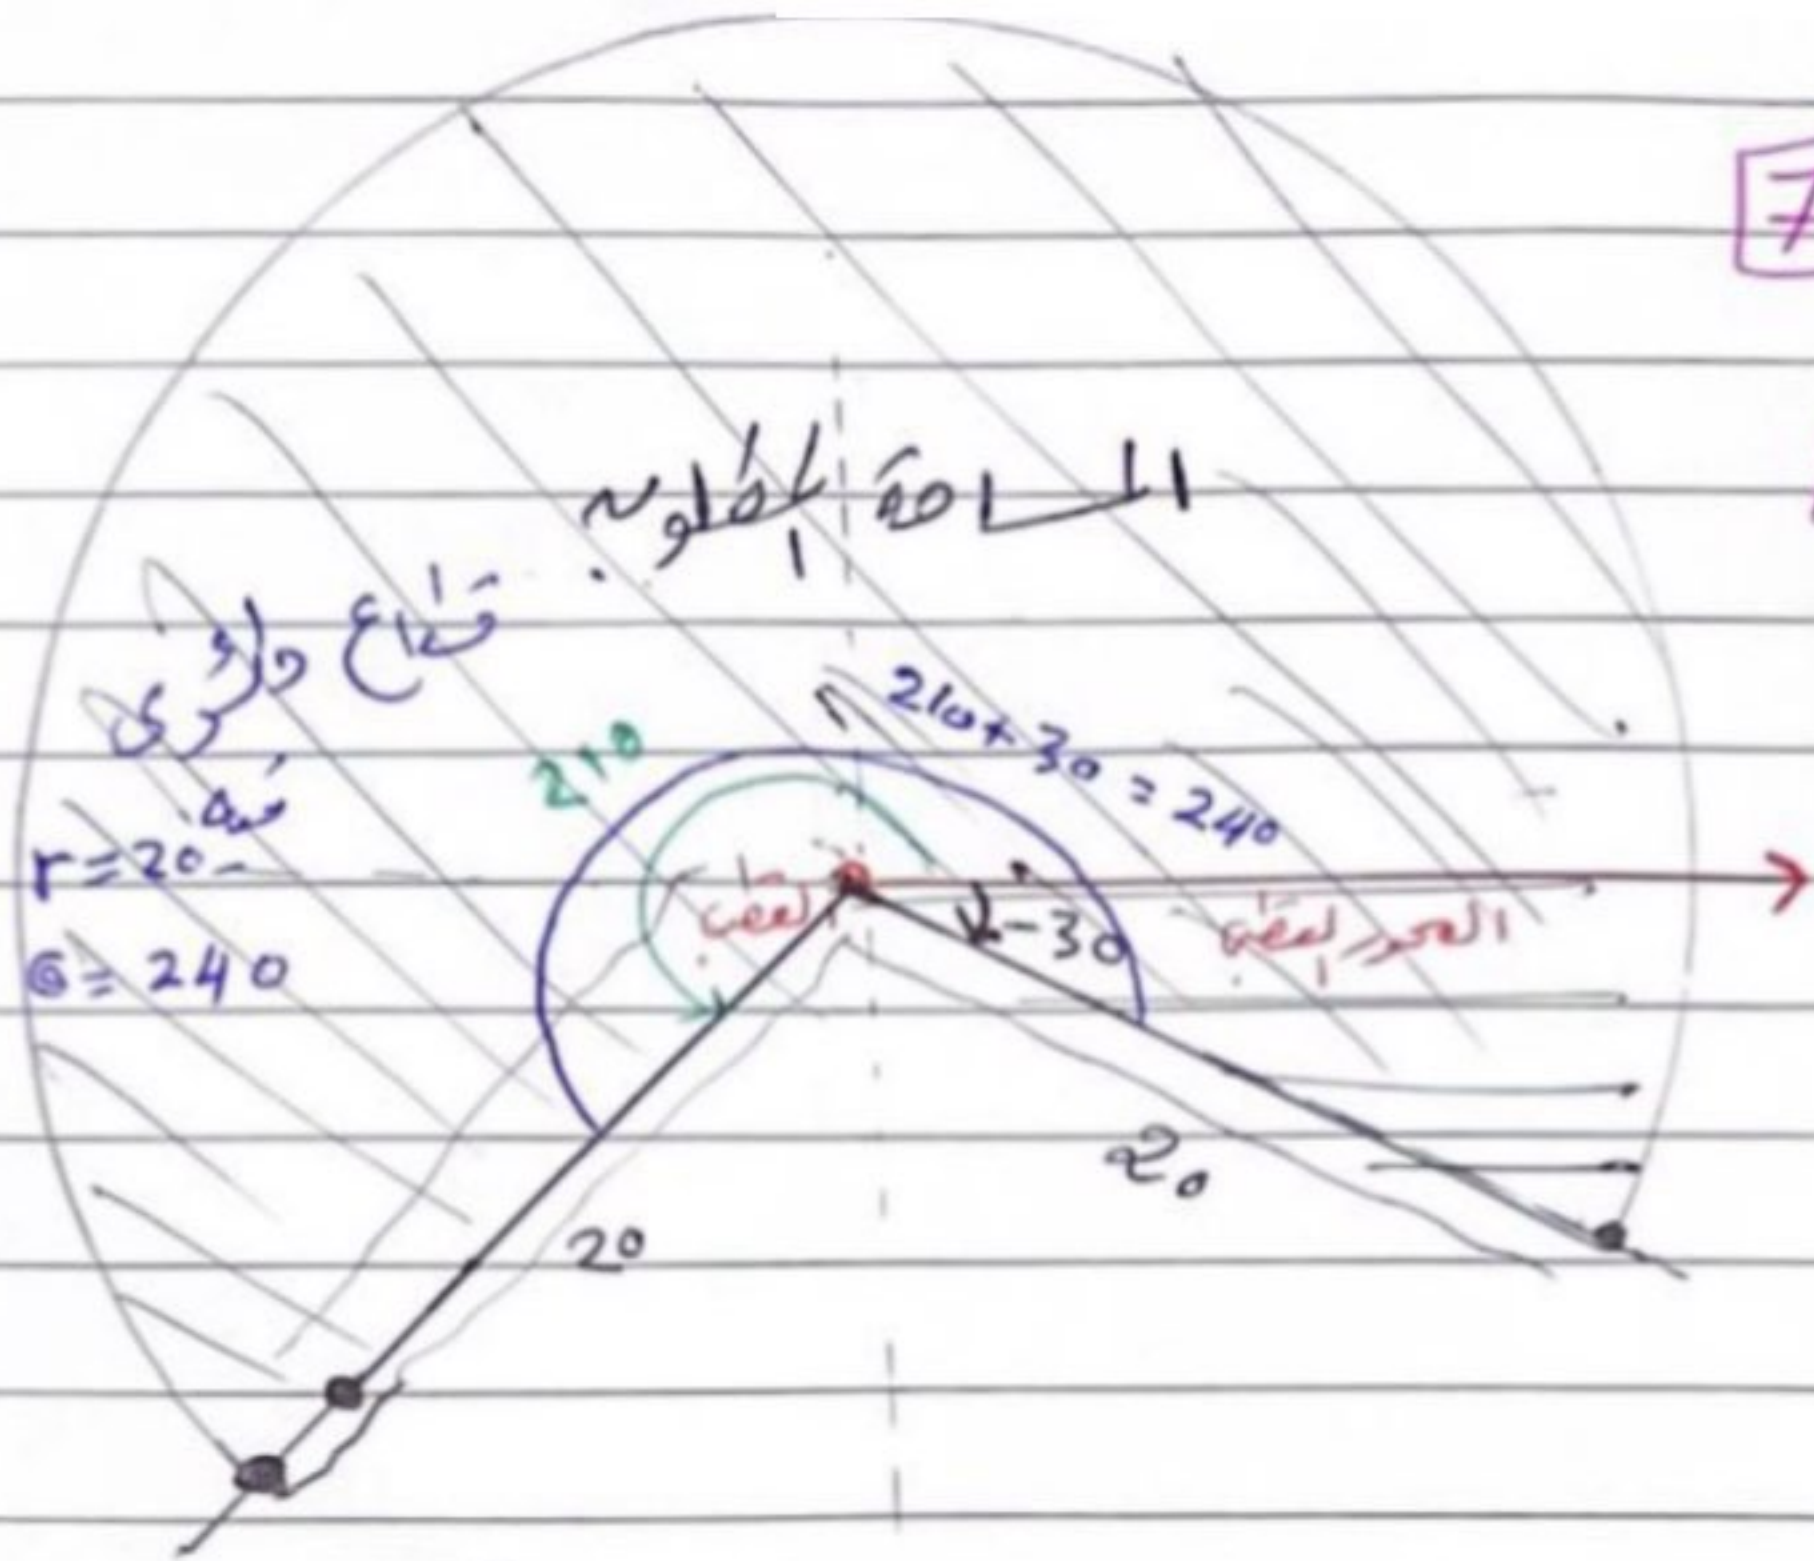 7
المساحة المطلوبة
قطاع دائري
فيه
210+30=240
210
r=20
θ=240
القطب
-30
المحور القطبي
20
20